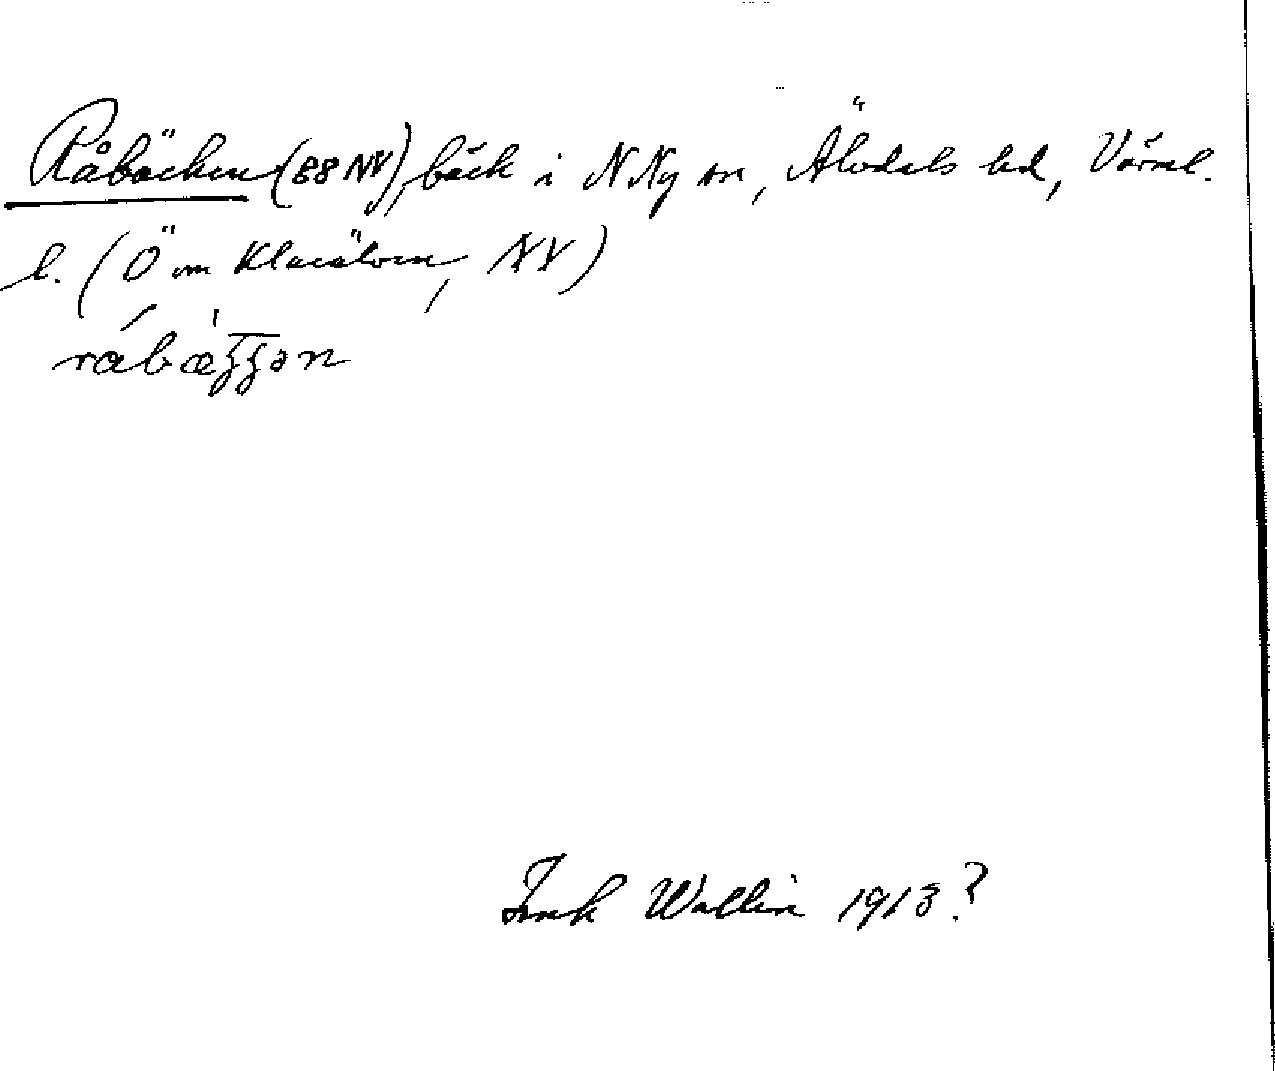 Råbäcken (88 NV), bäck i N Ny sn, Älvdals hd, Värml.
l. (Ö om Klarälven, NV)
råbæʒʒən
Wallin 1913?